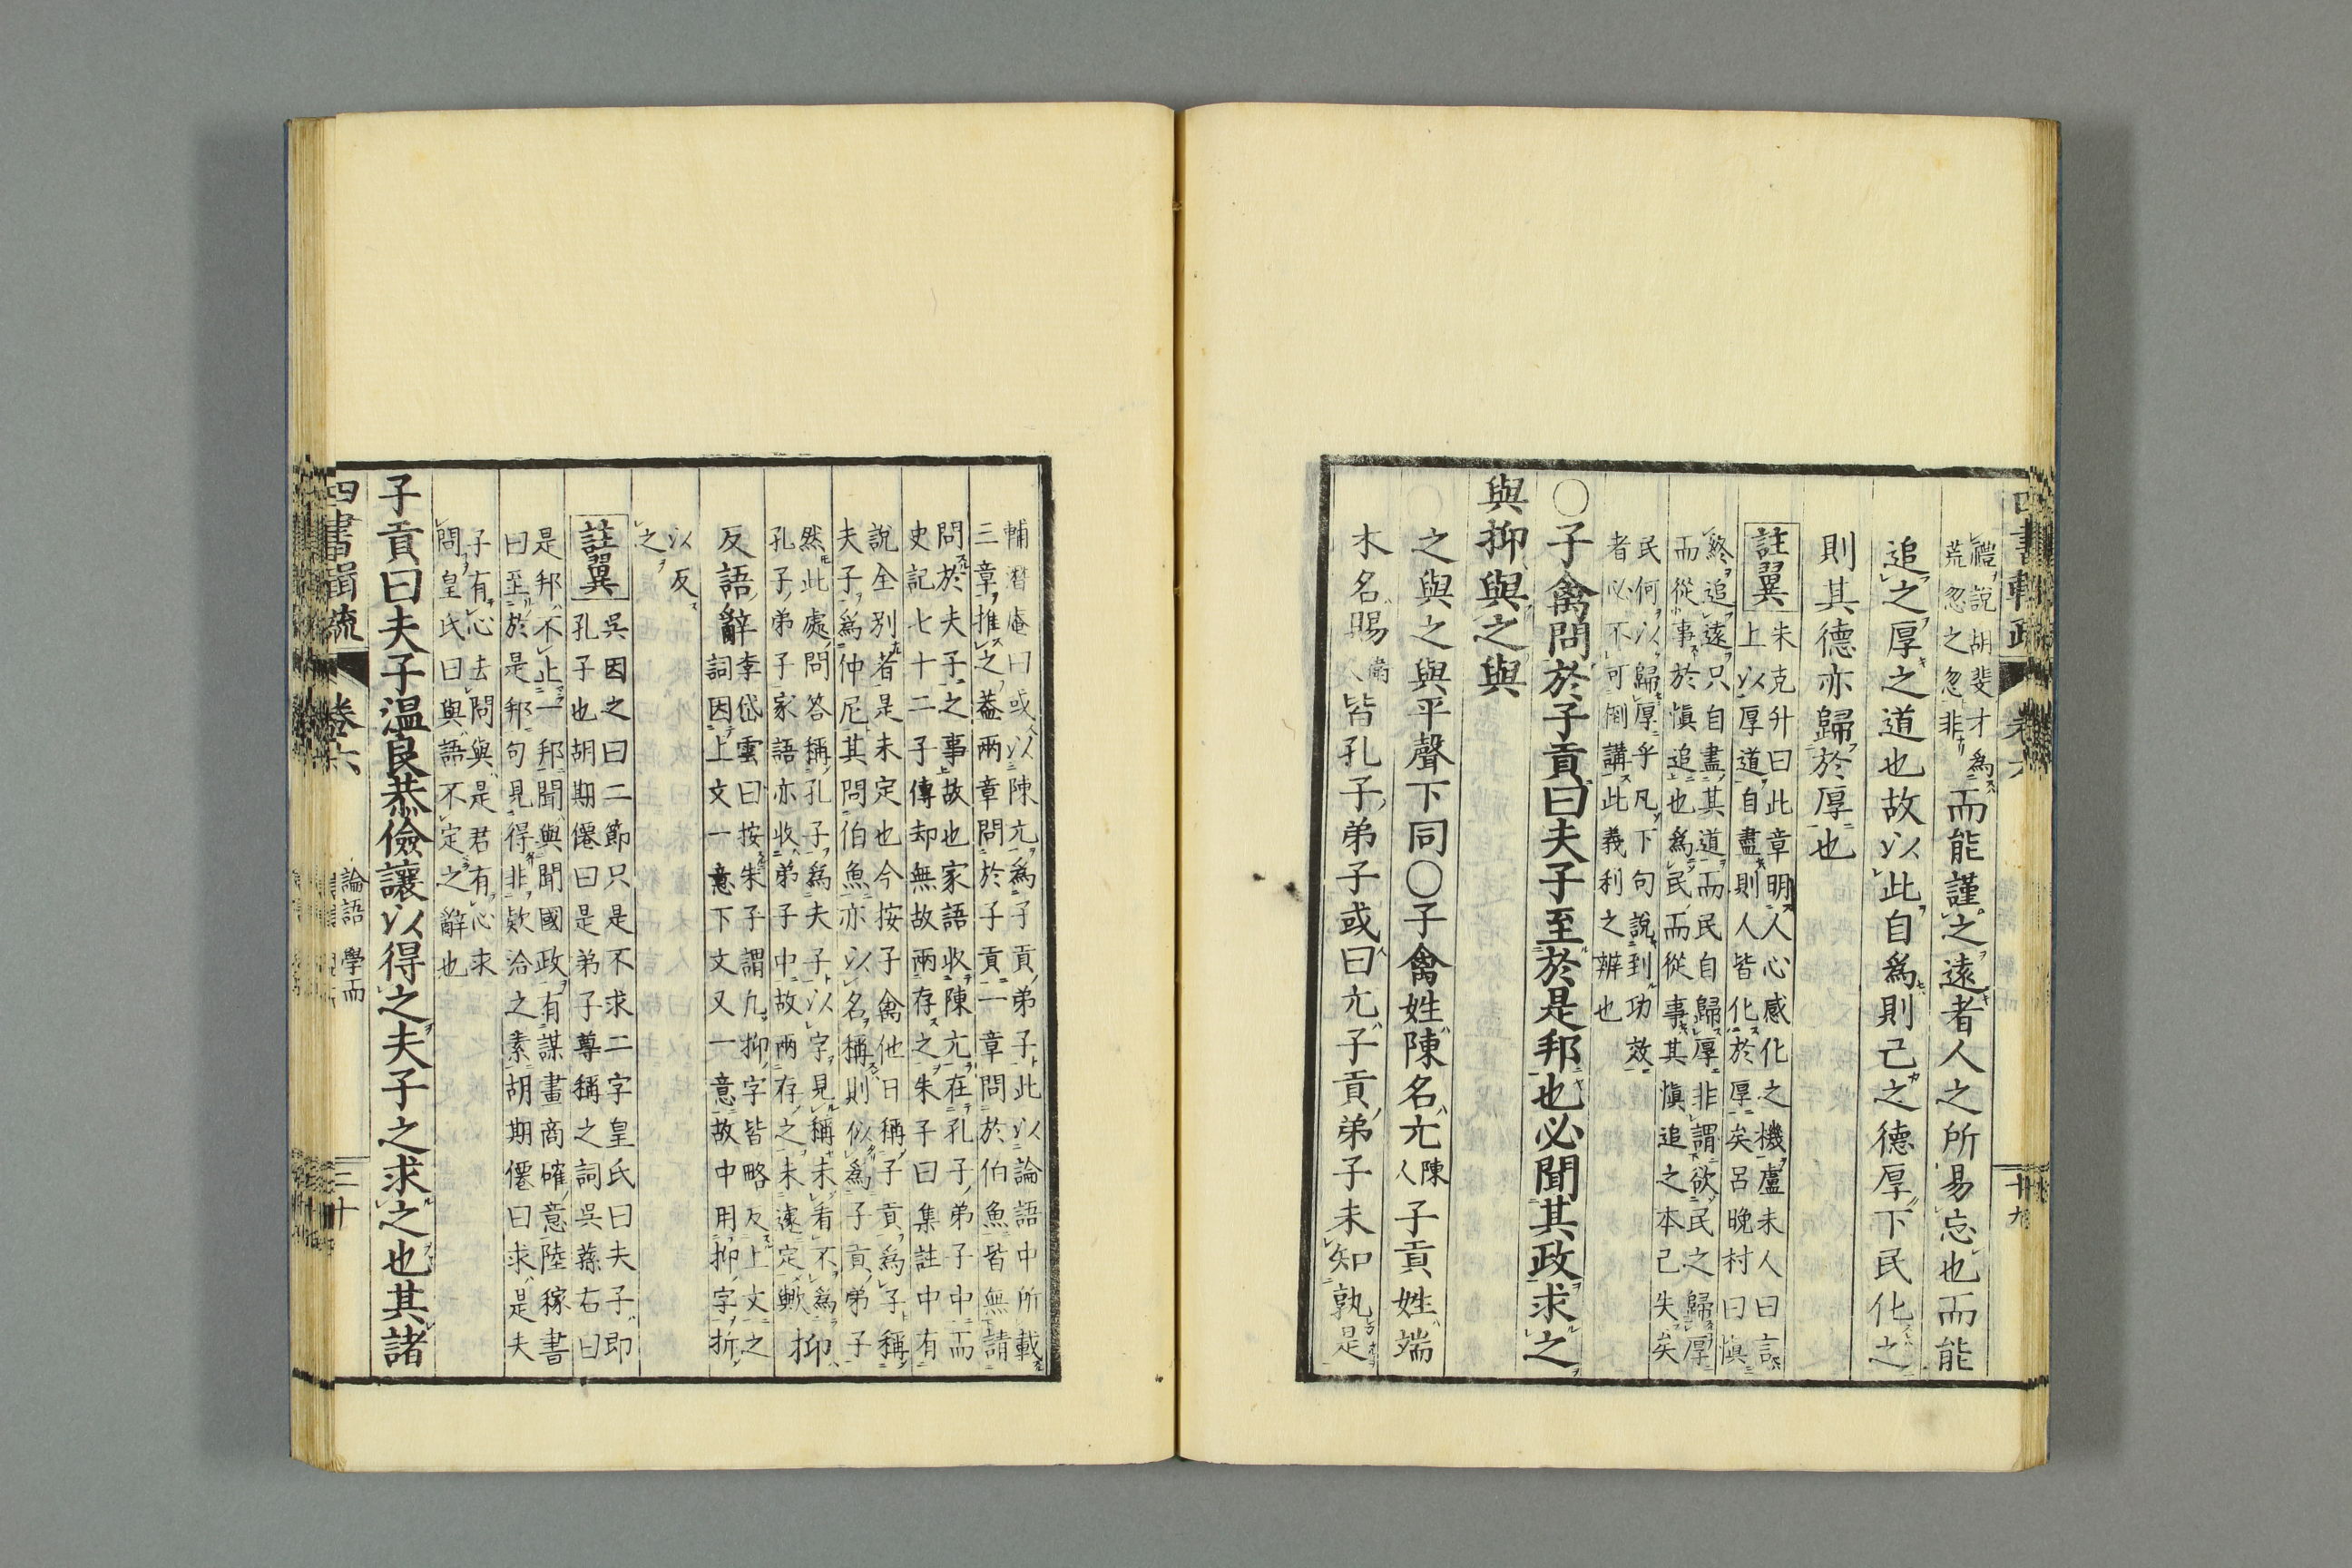 禮說胡斐才爲
荒忽之忽非
而能謹之遠者人之所易忘也而能
追之厚之道也故以此自爲則己之德厚下民化之
則其德亦歸於厚也
註翼
朱克升曰此章明人心感化之機盧未人曰言
上以厚道自盡則人皆化於厚矣呂晚村曰愼
終追遠只自盡其道而民自歸厚非謂欲民之歸厚
而從事於愼追也爲民而從事其愼追之本已失矣
民何以歸厚乎凡下句說到功效
者必不可倒講此義利之辨也
○子禽問於子貢曰夫子至於是邦也必聞其政求之
與抑與之與
之與之與平聲下同○子禽姓陳名亢陳人子貢姓端
木名賜衞人皆孔子弟子或曰亢子貢弟子未知孰是
輔潛庵曰或以陳亢爲子貢弟子此以論語中所載
三章推之蓋兩章問於子貢一章問於伯魚皆無請
問於夫子之事故也家語收陳亢在孔子弟子中而
史記七十二子傳却無故兩存之朱子曰集註中有
說全別者是未定也今按子禽他日稱子貢爲子稱
夫子爲仲尼其問伯魚亦以名稱則似爲子貢弟子
然此處問答稱孔子爲夫子以字見稱未看不爲
孔子弟子家語亦收弟子中故兩存之未遽定歟
抑
反語辭
李岱雲曰按朱子謂凡抑字皆略反上文之
詞因上文一意下文又一意故中用抑字折
以反
之
註翼
吳因之曰二節只是不求二字皇氏曰夫子即
孔子也胡期僊曰是弟子尊稱之詞吳蓀右曰
是邦不止一邦聞與聞國政有謀畫商確意陸稼書
曰至於是邦句見得非歘洽之素胡期僊曰求是夫
子有心去問與是君有心求
問皇氏曰與語不定之辭也
子貢曰夫子温良恭儉讓以得之夫子之求之也其諸
四書輯疏
卷六
論語 學而
三十